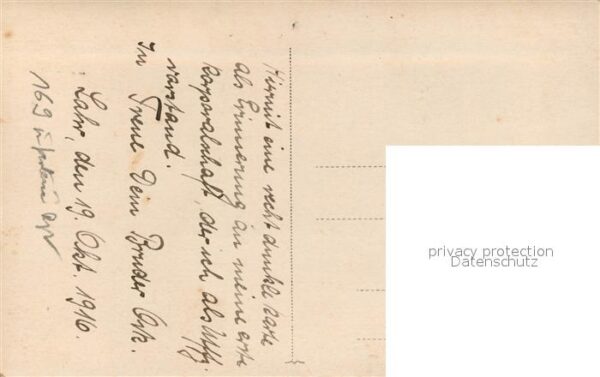 Hiermit eine recht dunkle Karte
als Erinnerung an meine erste
Korporalschaft, der ich als Uffz.
vorstand.
In Treue Dein Bruder Osk.
Lahr, den 19. Okt. 1916.
169
privacy protection
Datenschutz